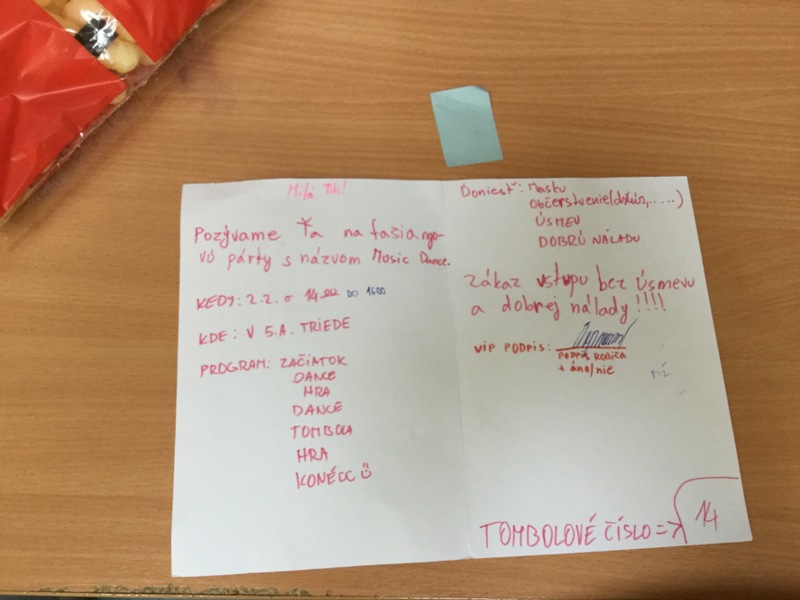 Milá Titi!
Pozývame Ťa na fašiango-
vó párty s názvom Music Dance.
KEDY: 2.2. o 14:00 DO 16:00
KDE: V 5.A. TRIEDE
PROGRAM: ZAČIATOK
DANCE
HRA
DANCE
TOMBOLA
HRA
KONÉCC
Doniesť: Masku
Občerstvenie(džús,.....)
ÚSMEV
DOBRÚ NÁLADU
Zákaz vstupu bez úsmevu
a dobrej nálady!!!!
VIP PODPIS:
PODPIS RODIČA
+ áno/nie
TOMBOLOVÉ ČÍSLO => 14